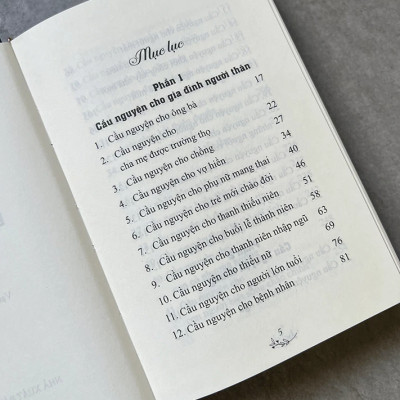 Mục lục
Phần 1
Cầu nguyện cho gia đình người thân
1. Cầu nguyện cho ông bà 17
2. Cầu nguyện cho
cha mẹ được trường thọ 22
3. Cầu nguyện cho chồng 27
4. Cầu nguyện cho vợ hiền 34
5. Cầu nguyện cho phụ nữ mang thai 40
6. Cầu nguyện cho trẻ mới chào đời 46
7. Cầu nguyện cho thanh thiếu niên 51
8. Cầu nguyện cho buổi lễ thành niên 58
9. Cầu nguyện cho thanh niên nhập ngũ 63
10. Cầu nguyện cho thiếu nữ 69
11. Cầu nguyện cho người lớn tuổi 76
12. Cầu nguyện cho bệnh nhân 81
5